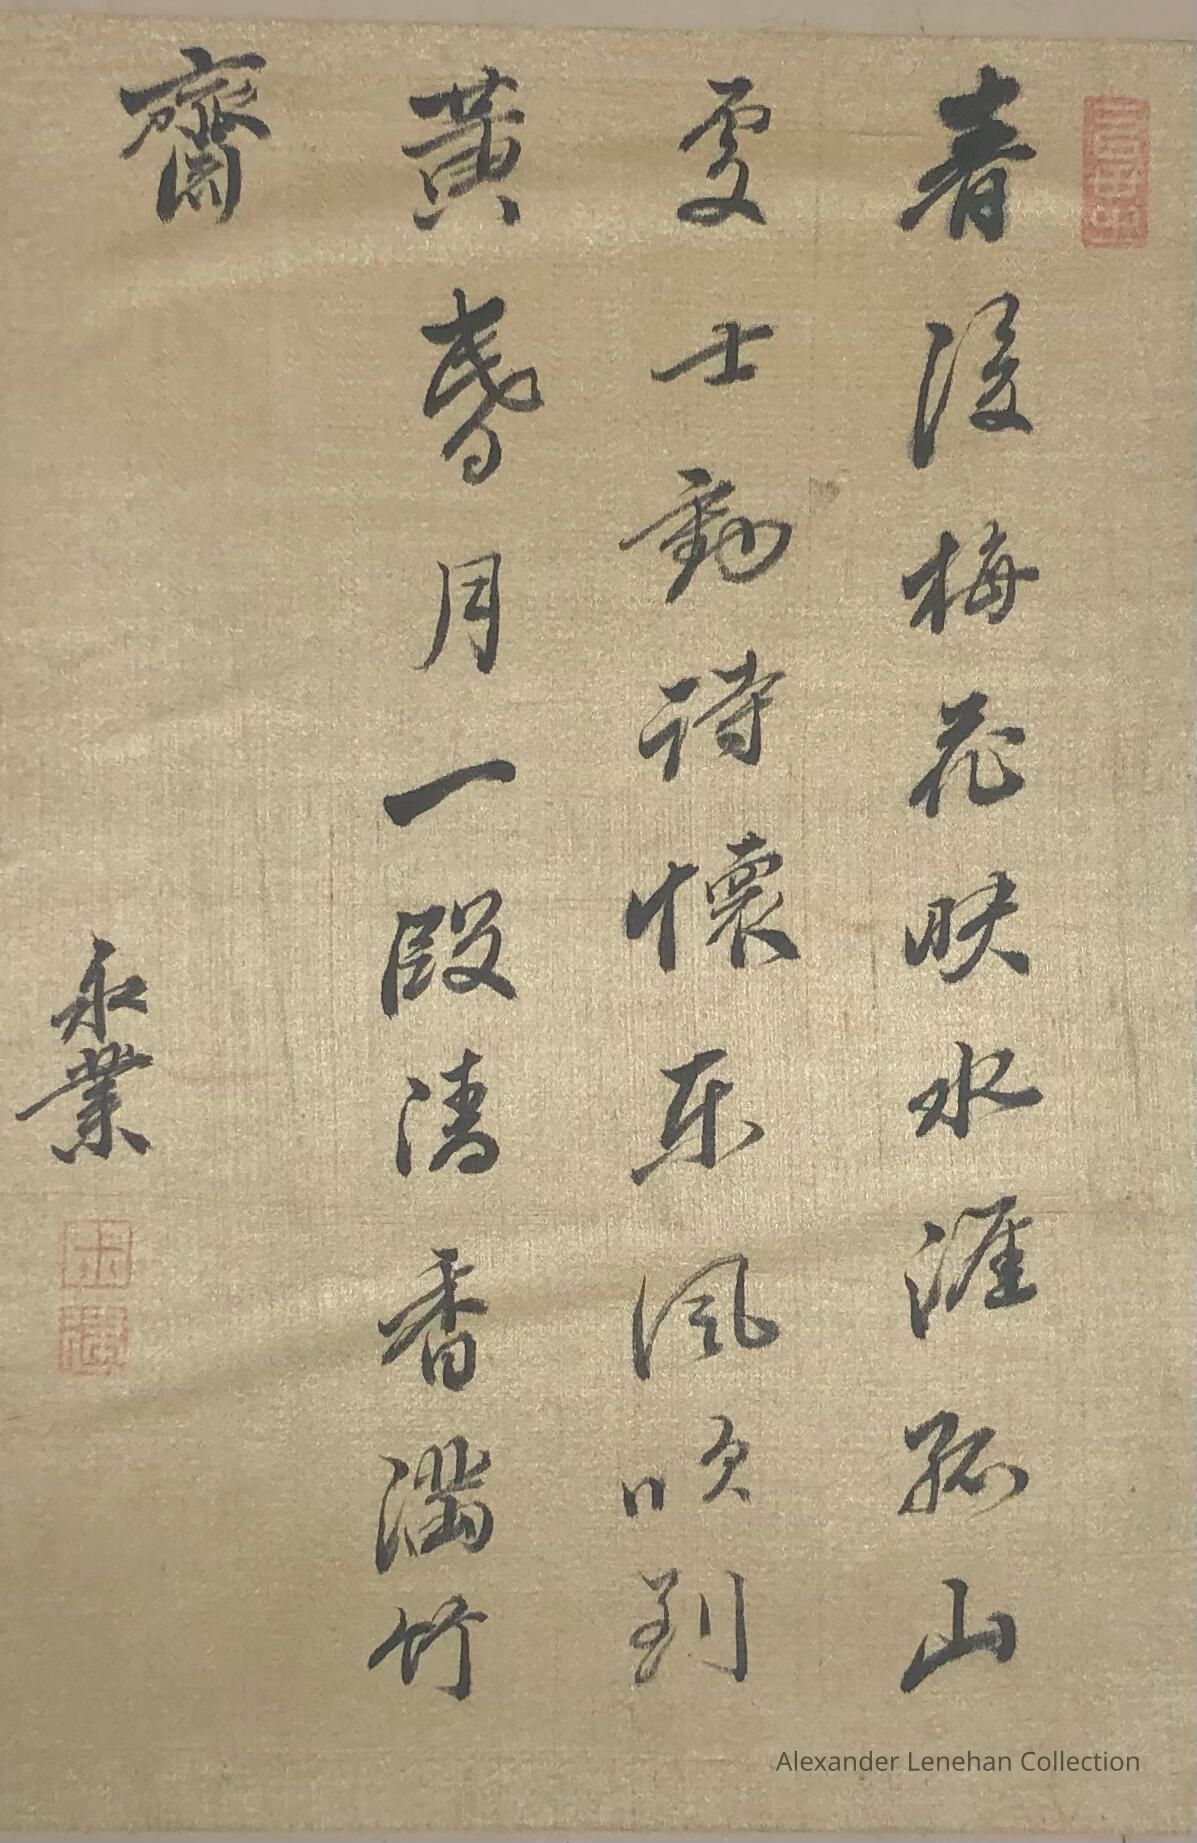 春後梅花映水涯孤山
處士動詩懷東風吹到
黃昏月一段清香滿竹
齋
永業
Alexander Lenehan Collection